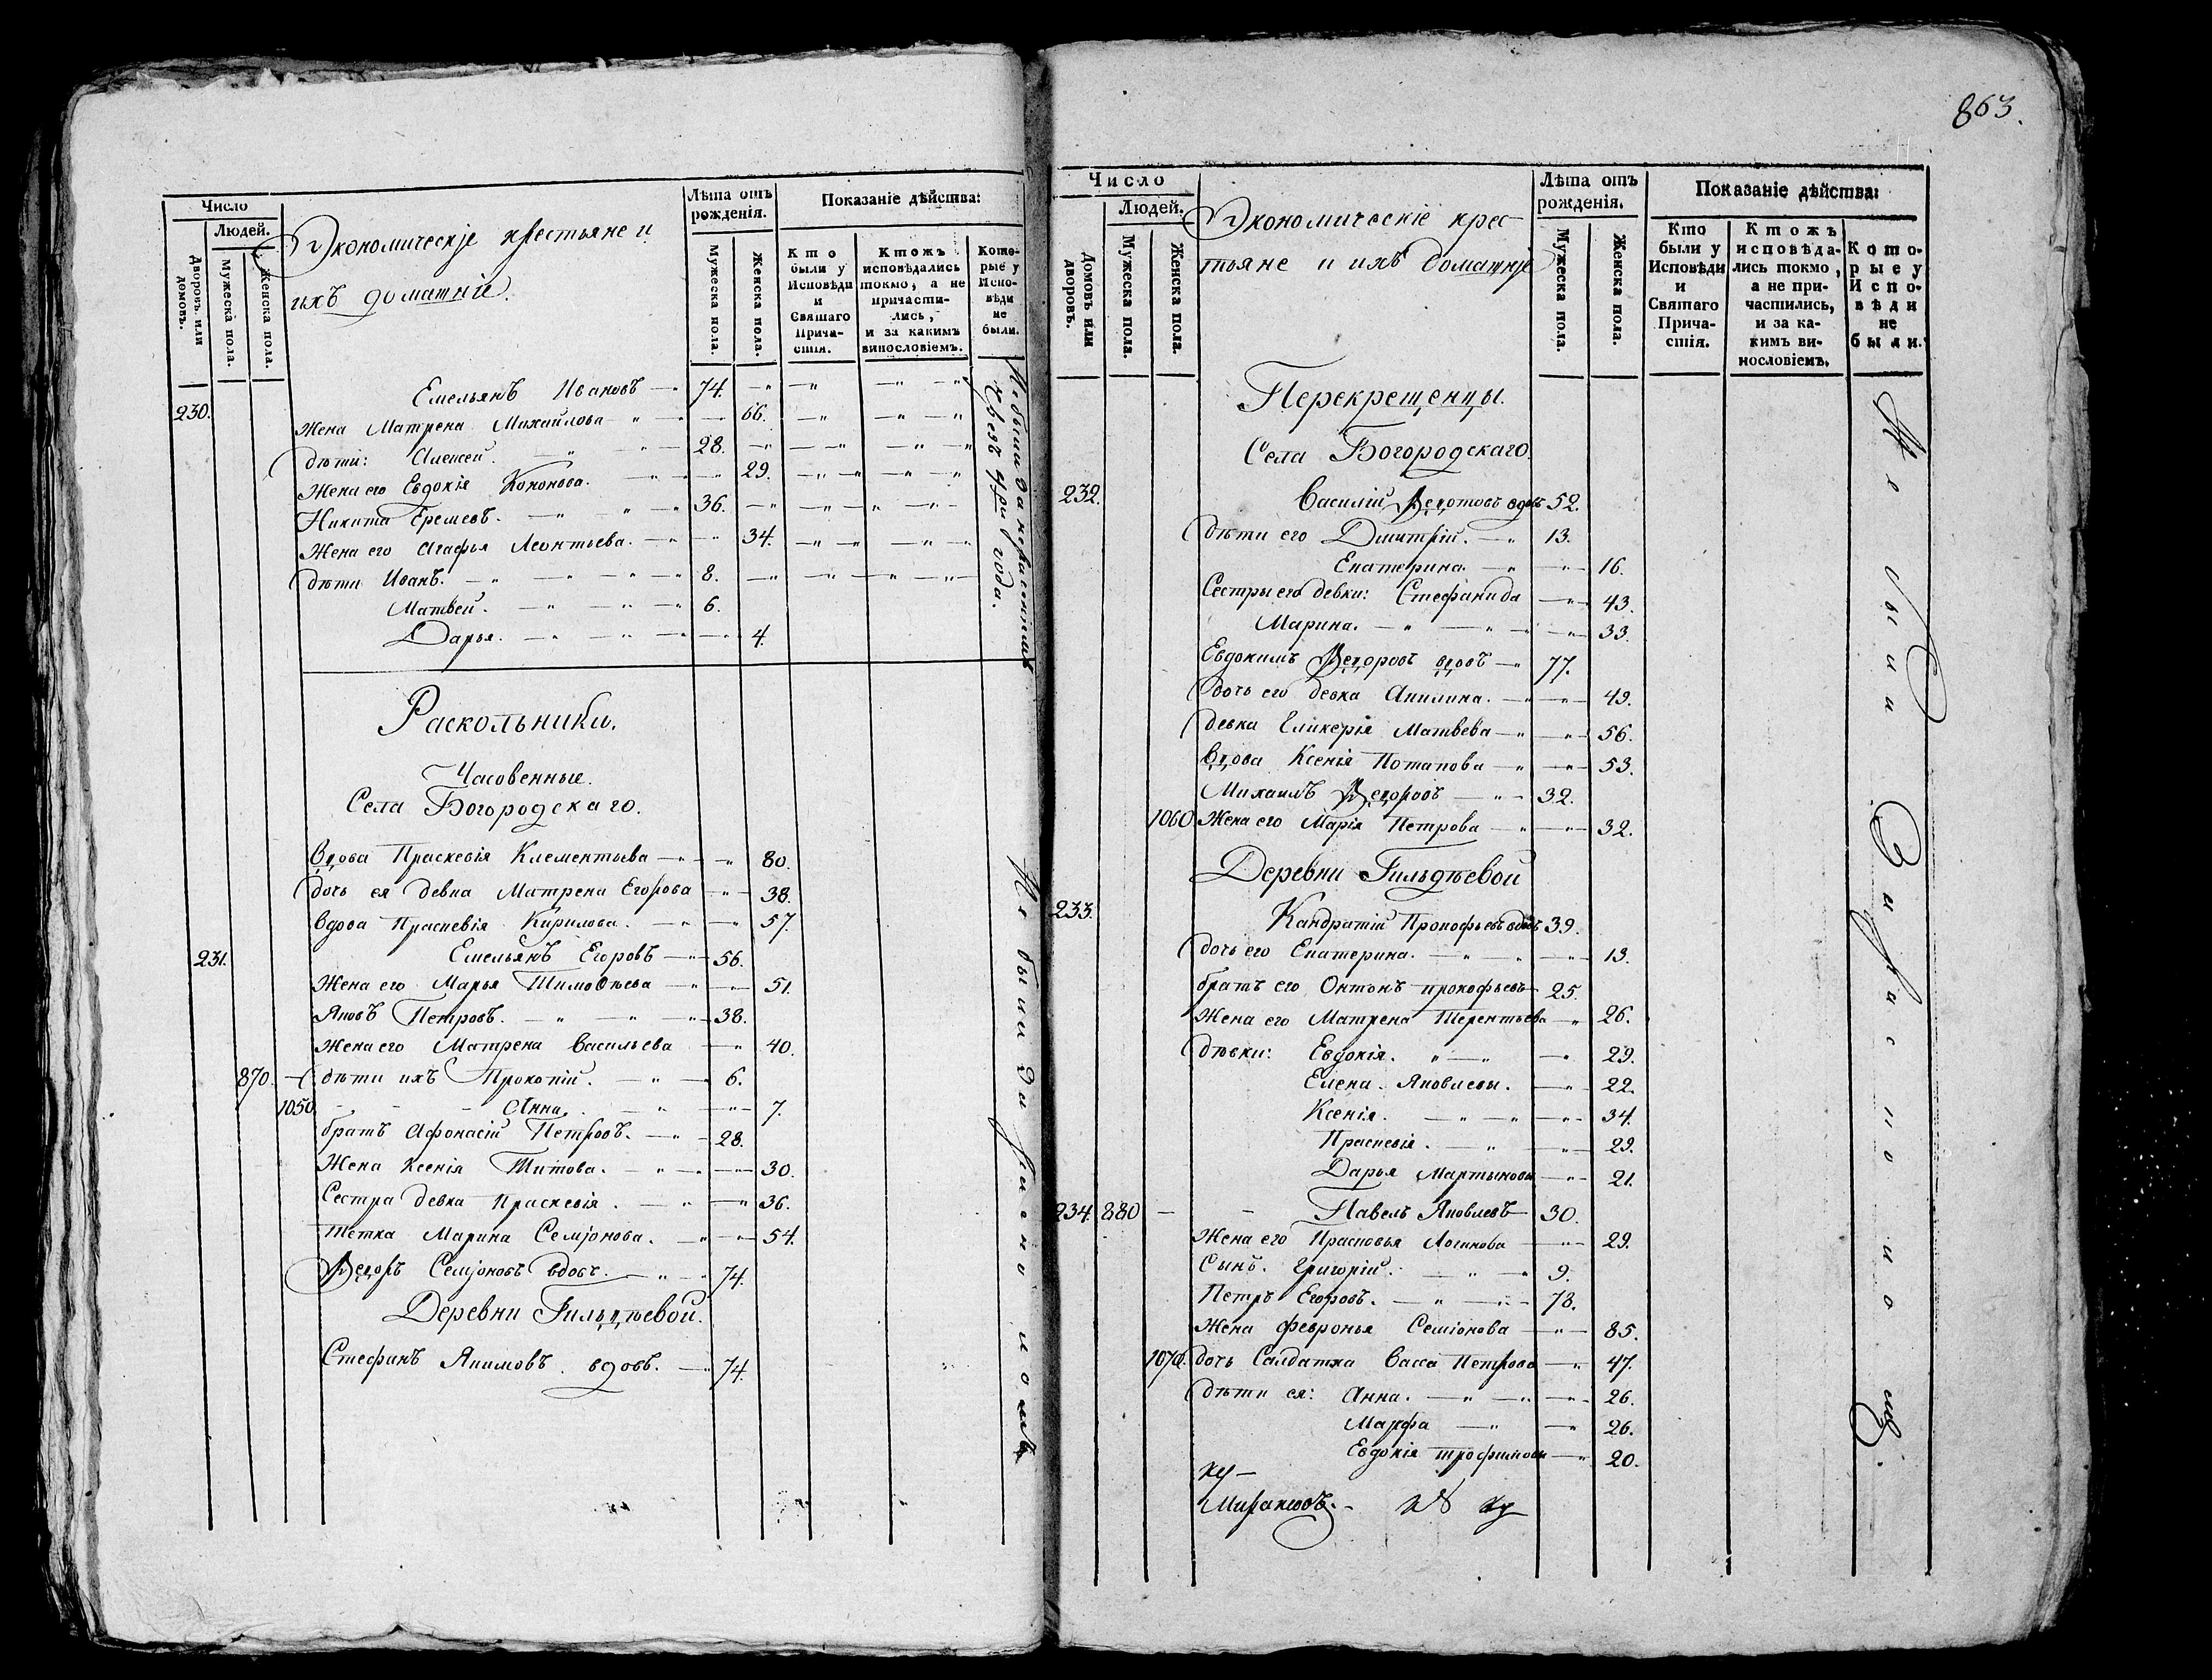 Число
Людей.
Дворовъ или домовъ.
Мужеска пола.
Женска пола.
Экономическіе крестьяне и
ихъ доматніе.
Лѣта отъ рожденія.
Мужеска пола.
Женска пола.
Показаніе дѣйства:
Кто были у Исповѣди и Святаго Прича-стія.
Ктожъ исповѣдались токмо, а не причасти-лись, и за какимъ винословіемъ.
Кото-рые у Испо-вѣди не были.
230. Емельянъ Ивановъ 74.
Жена Матрена Михайлова 66.
дѣти: Алексей. 28.
Жена его Евдокія Кононова. 29.
Никита Еремеевъ. 36.
Жена его Агафья Леонтьева. 34.
дѣти Иванъ. 8.
Матвей. 6.
Дарья. 4.
Не были за нерасснимъ
чрезъ три года.
Раскольники.
Часовенные.
Села Богородскаго.
Вдова Праскевія Клементьева 80.
дочь ея девка Матрена Егорова 38.
вдова Праскевія Кирилова. 57.
231. Емельянъ Егоровъ 56.
Жена его Марья Тимоѳѣева 51.
Яковъ Петровъ. 38.
Жена его Матрена Васильева 40.
870. дѣти ихъ Прокопій. 6.
1050. Анна. 7.
братъ Афонасій Петровъ. 28.
Жена Ксенія Титова. 30.
Сестра девка Праскевія. 36.
Тетка Марина Семіонова. 54.
Ѳедоръ Семіоновъ вдовъ. 74.
Деревни Гильдѣевой.
Стефанъ Якимовъ вдовъ. 74.
Не были За расколомъ
863.
Число
Людей.
Домовъ или дворовъ.
Мужеска пола.
Женска пола.
Экономическіе крес-
тьяне и ихъ доматніе
Лѣта отъ рожденія.
Мужеска пола.
Женска пола.
Показаніе дѣйства:
Кто были у Исповѣди и Святаго Прича-стія.
Ктожъ исповѣда-лись токмо, а не при-частились, и за ка-кимъ ви-нословіемъ.
Кото-рые у Испо-вѣди не были.
Перекрещенцы.
Села Богородскаго.
232. Василій Ѳедотовъ вдовъ 52.
дѣти его Дмитрій. 13.
Екатерина. 16.
Сестры его девки: Стефанида 43.
Марина. 33.
Евдокимъ Ѳедоровъ вдовъ 77.
дочь его девка Акилина. 49.
девка Гликерія Матвеева 56.
Вдова Ксенія Потапова 53.
Михаилъ Ѳедоровъ 32.
1060. Жена его Марія Петрова 32.
Деревни Гильдѣевой
233. Кандратій Прокофьевъ вдовъ 39.
дочь его Екатерина. 13.
братъ его Онтонъ прокофьевъ 25.
Жена его Матрена Терентьева 26.
дѣвки: Евдокія. 29.
Елена. Яковлевы. 22.
Ксенія. 34.
Праскевія. 29.
Дарья Мартыновы 21.
234. 880 Павелъ Яковлевъ 30.
Жена его Прасковья Логинова 29.
Сынъ. Григорій. 9.
Петръ Егоровъ. 78.
Жена февронья Семіонова 85.
1070. дочь Салдатка Васса Петрова 47.
дѣти ея: Анна. 26.
Марфа 26.
Евдокія трофимовы 20.
Не были За расколомъ.